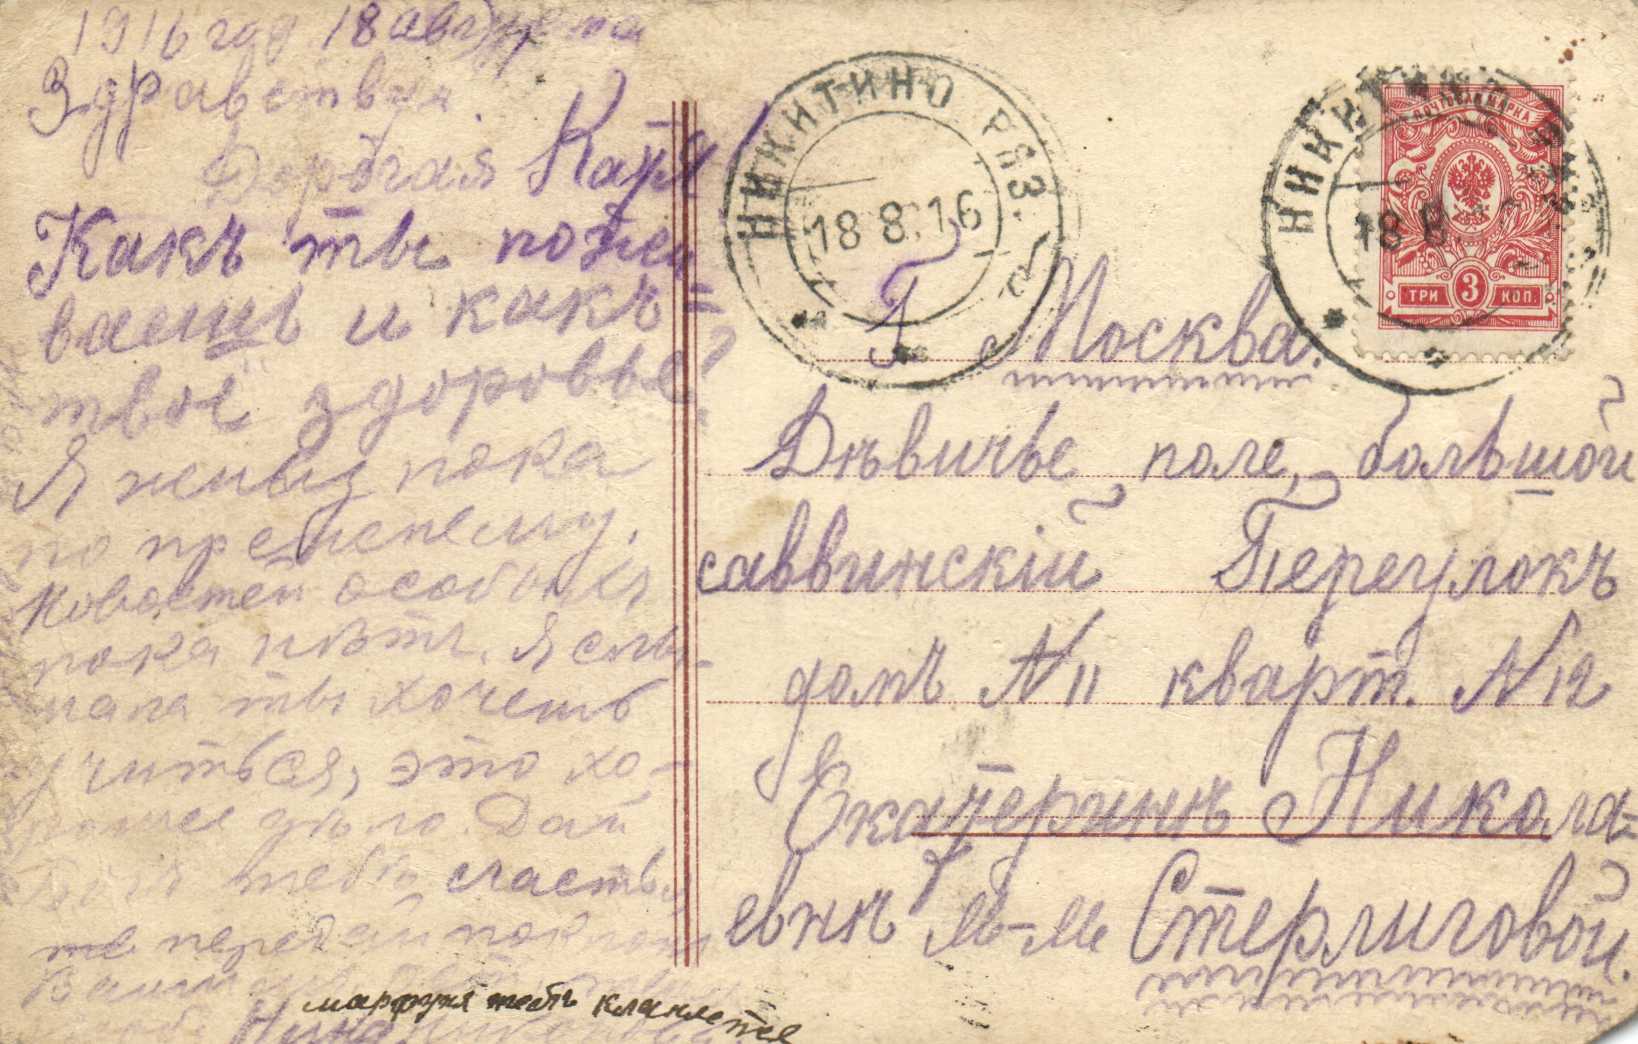 1916 год 18 августа
Здравствуй
Дорогая Катя!
Какъ ты пожи
ваешь и какъ
твоё здоровье?
Я живу пока
по прежнему.
Новостей особыхъ
пока нѣтъ. Я слы-
шала ты хочешь
учиться, это хо-
рошее дѣло. Дай
Богъ тебѣ счастья
передай поклонъ
Вашимъ
Нина
марфуня тебѣ кланяется
НИКИТИНО РЯЗ. Г.
18 8. 16
НИКИТИНО РЯЗ.
18 8
ПОЧТОВАЯ МАРКА
ТРИ 3 КОП.
Г. Москва.
Дѣвичье поле, большой
саввинскій Переулокъ
домъ N 11 кварт. N 12
Екатеринѣ Никола-
евнѣ М-ме Стерлиговой.